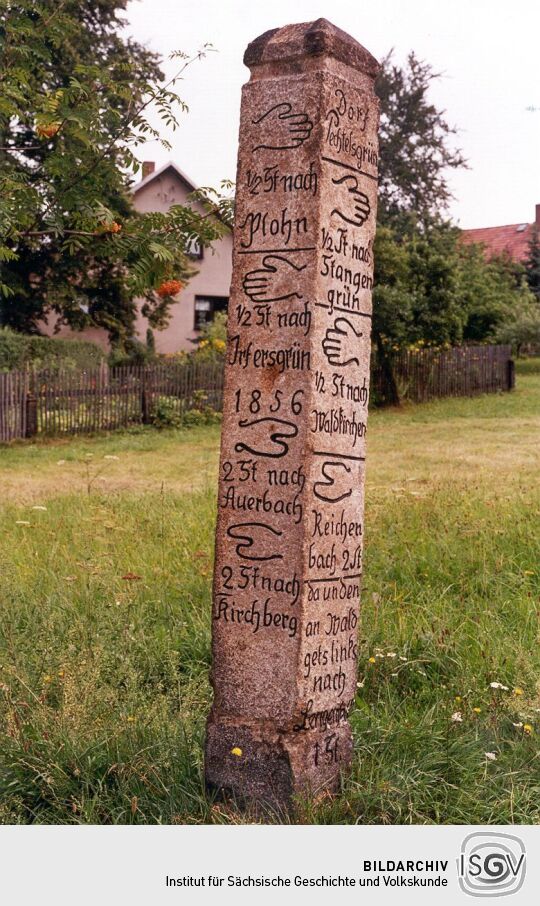 ½ St nach
Plohn
½ St nach
Irfersgrün
1856
2 St nach
Auerbach
2 St nach
Kirchberg
Dorf
Pechtelsgrün
½ St nach
Stangen
grün
½ St nach
Waldkirchen
Reichen
bach 2 St
da unden
an Wald
gets links
nach
1 St
BILDARCHIV
Institut für Sächsische Geschichte und Volkskunde
ISGV